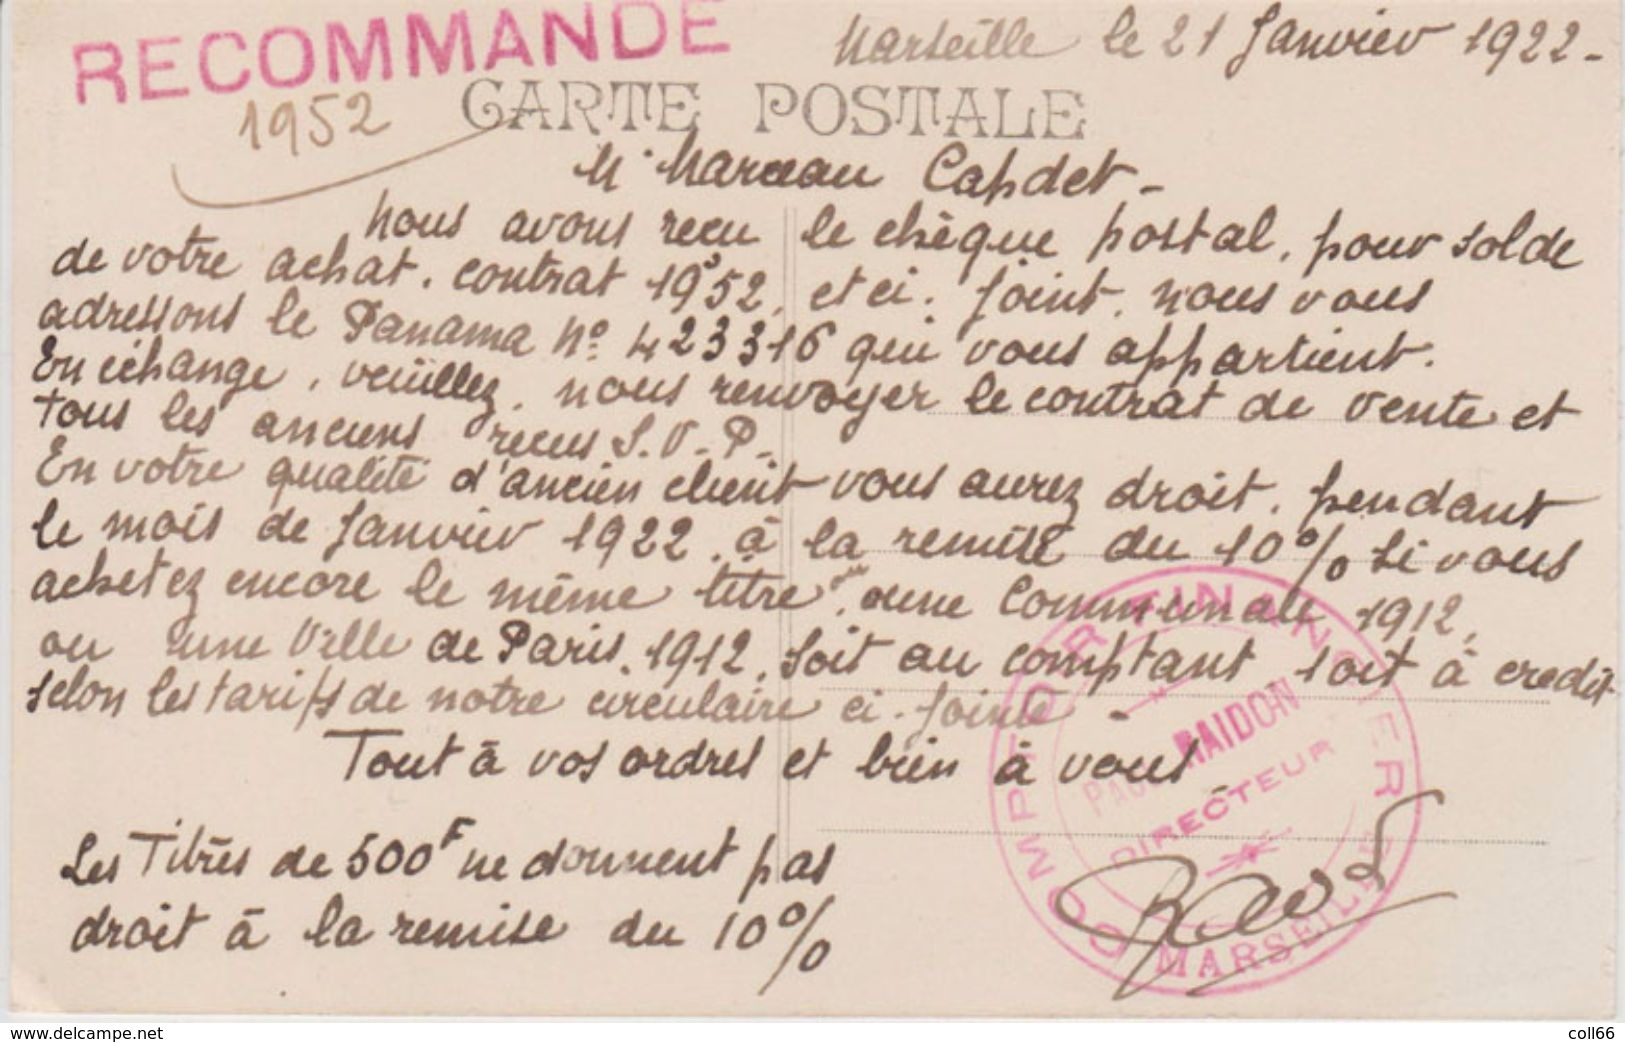 RECOMMANDE
Marseille le 21 Janvier 1922 -
1952
CARTE POSTALE
Mr Marceau Capdet -
Nous avons recu le chèque postal, pour solde
de votre achat, contrat 1952, et ci-joint, nous vous
adressons le Panama No 423316 qui vous appartient.
En échange, veuillez, nous renvoyer le contrat de vente et
tous les anciens recus S.V.P.
En votre qualité d'ancien client vous aurez droit, pendant
le mois de Janvier 1922, à la remise du 10% si vous
achetez encore le même titre, ou une Communale 1912,
ou une Ville de Paris, 1912, soit au comptant, soit à credit
selon les tarifs de notre circulaire ci-jointe -
Tout à vos ordres et bien à vous -
COMPTOIR FINANCIER
RAIDON
DIRECTEUR
MARSEILLE
Les Titres de 500F ne donnent pas
droit à la remise du 10%
www.delcampe.net
coll66